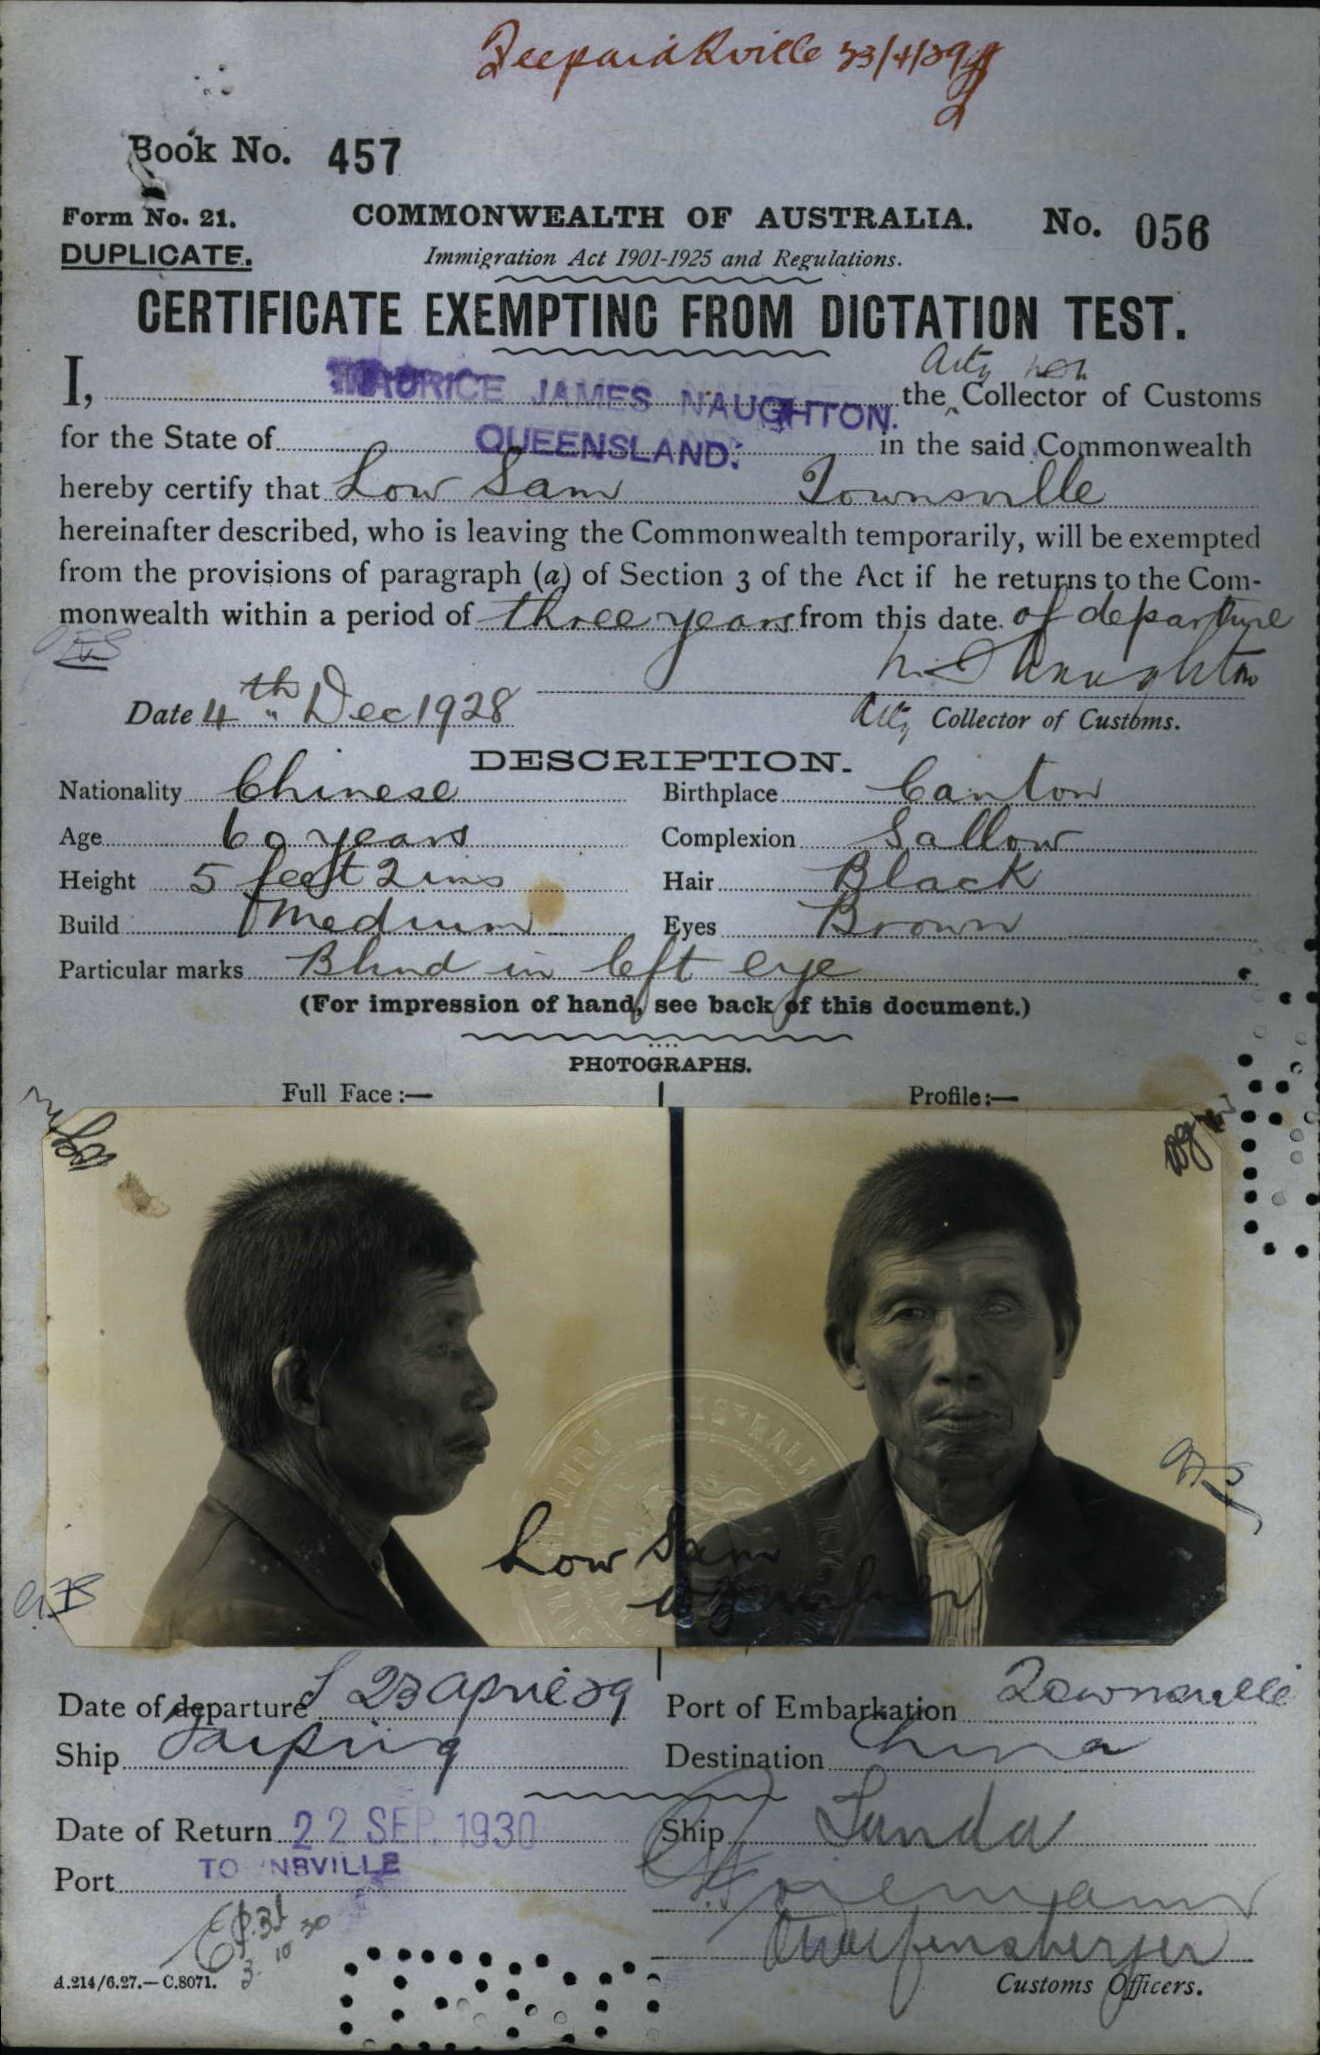 23/4/29
Book No. 457
Form No. 21. COMMONWEALTH OF AUSTRALIA. No. 056
DUPLICATE. Immigration Act 1901-1925 and Regulations.
CERTIFICATE EXEMPTING FROM DICTATION TEST.
Actg
I, MAURICE JAMES NAUGHTON. the Collector of Customs
for the State of QUEENSLAND. in the said Commonwealth
hereby certify that Low Sam Townsville
hereinafter described, who is leaving the Commonwealth temporarily, will be exempted
from the provisions of paragraph (a) of Section 3 of the Act if he returns to the Com-
monwealth within a period of three years from this date of departure
M. J. Naughton
Date 4th Dec 1928 Actg Collector of Customs.
DESCRIPTION.
Nationality Chinese Birthplace Canton
Age 60 years Complexion Sallow
Height 5 feet 2 ins Hair Black
Build Medium Eyes Brown
Particular marks Blind in left eye
(For impression of hand, see back of this document.)
PHOTOGRAPHS.
Full Face:— Profile:—
Low Sam
Date of departure 23 April 29 Port of Embarkation Townsville
Ship Taiping Destination China
Date of Return 22 SEP. 1930 Ship Tanda
Port TOWNSVILLE
3.10.30
A.214/6.27.—C.8071. Customs Officers.